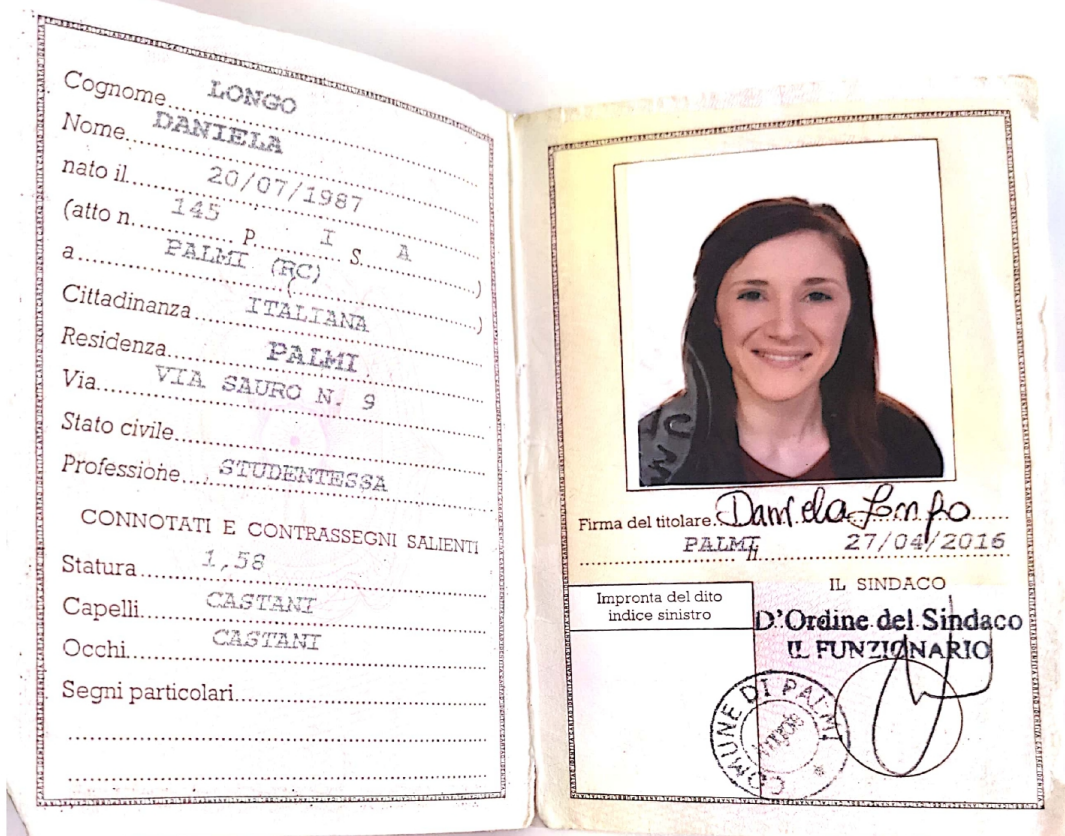 Cognome LONGO
Nome DANIELA
nato il 20/07/1987
(atto n. 145 P. I S. A )
a PALMI (RC) ( )
Cittadinanza ITALIANA
Residenza PALMI
Via VIA SAURO N. 9
Stato civile
Professione STUDENTESSA
CONNOTATI E CONTRASSEGNI SALIENTI
Statura 1,58
Capelli CASTANI
Occhi CASTANI
Segni particolari
Firma del titolare Daniela Longo
PALMI lì 27/04/2016
Impronta del dito
indice sinistro
IL SINDACO
D'Ordine del Sindaco
IL FUNZIONARIO
COMUNE DI PALMI